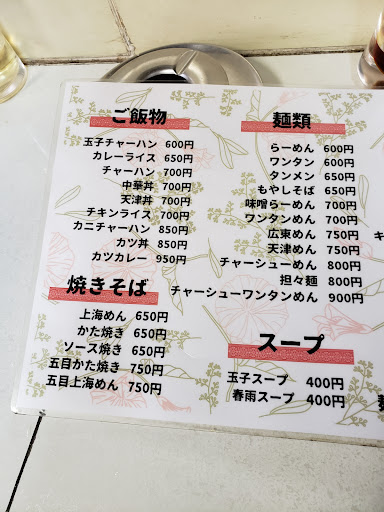 ご飯物
玉子チャーハン 600円
カレーライス 650円
チャーハン 700円
中華丼 700円
天津丼 700円
チキンライス 700円
カニチャーハン 850円
カツ丼 850円
カツカレー 950円
焼きそば
上海めん 650円
かた焼き 650円
ソース焼き 650円
五目かた焼き 750円
五目上海めん 750円
麺類
らーめん 600円
ワンタン 600円
タンメン 650円
もやしそば 650円
味噌らーめん 700円
ワンタンめん 700円
広東めん 750円
天津めん 750円
チャーシューめん 800円
担々麺 800円
チャーシューワンタンめん 900円
スープ
玉子スープ 400円
春雨スープ 400円